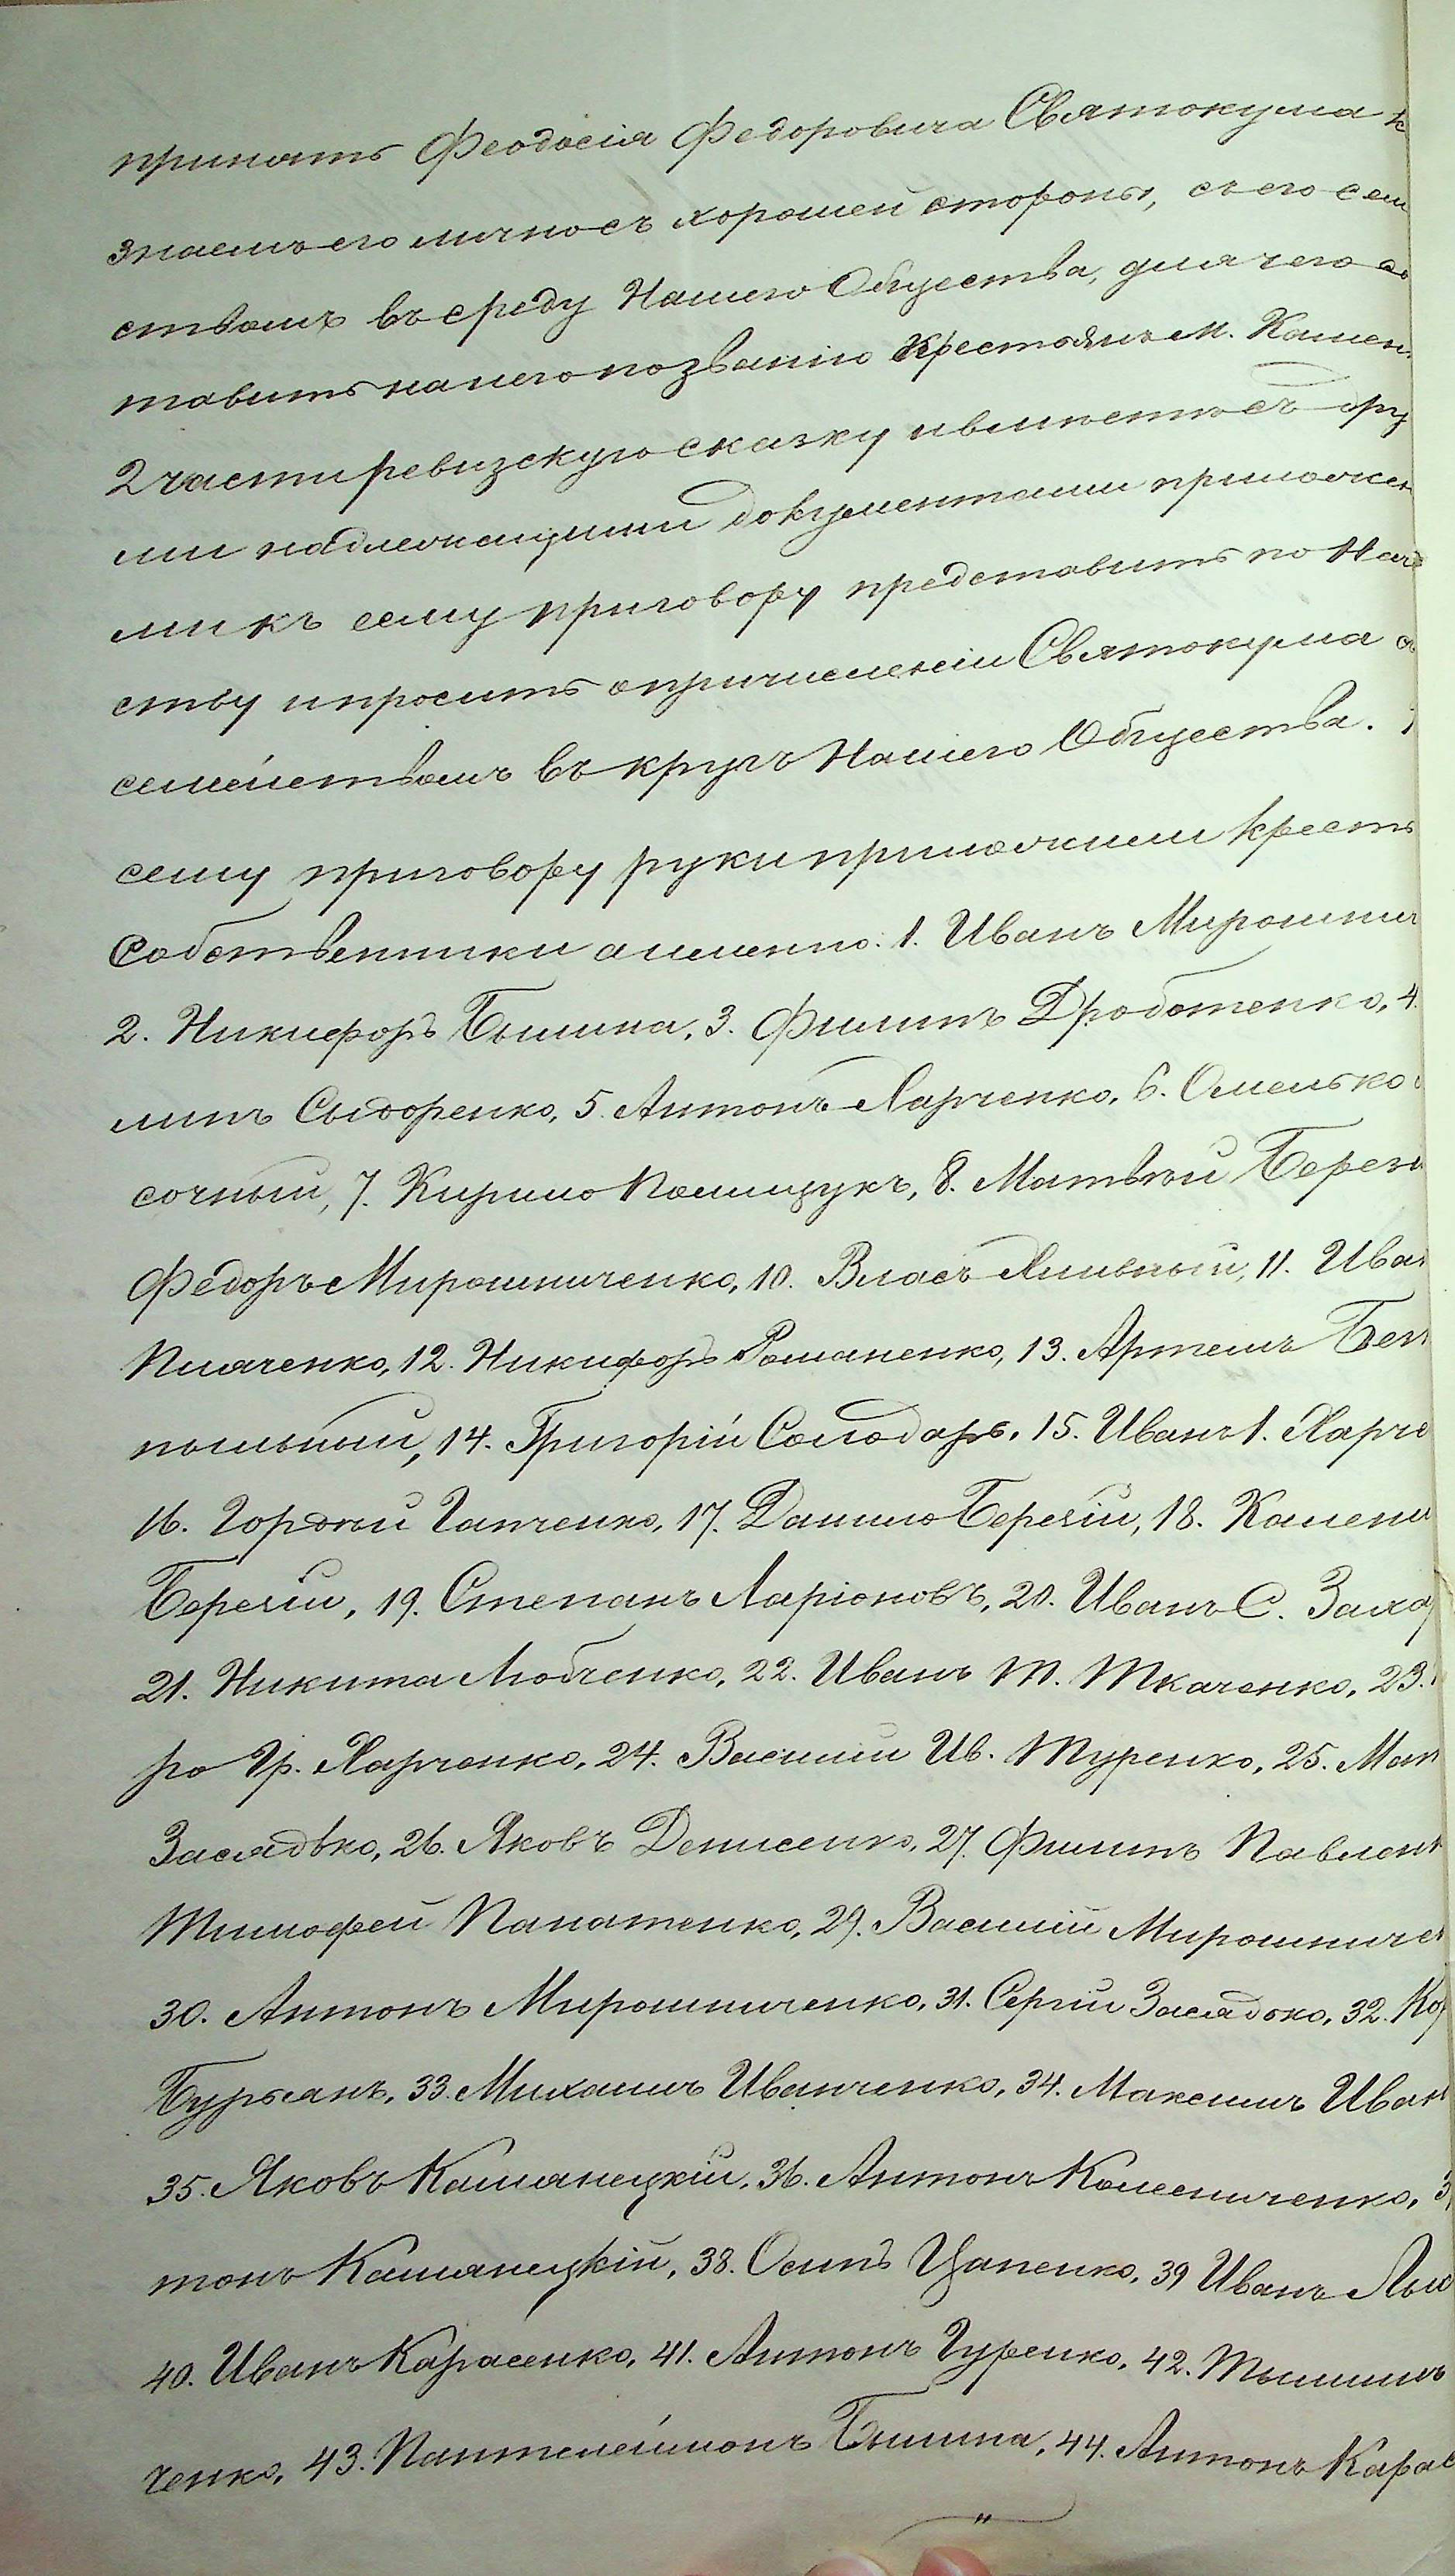 принять Феодосія Федоровича Святокума к
знаемъ его лично съ хорошей стороны, съ его сем
ствомъ въ среду Нашего Общества, для чего со
тавить на него по званію Крестьянъ м. Камен.
2 части ревизскую сказку и вмѣстѣ съ дру
ми надлежащими документами приложен
ми къ сему приговору представить по Нач
ству и просить о причисленіи Святокума с
семействомъ въ кругъ Нашего Общества.
сему приговору руки приложили крестъ
Собственники а именно: 1. Иванъ Мирошни
2. Никифоръ Былина, 3. Филипъ Дроботенко, 4.
липъ Сыдоренко, 5. Антонъ Харченко, 6. Омелько
сочный, 7. Кирило Полищукъ, 8. Матвѣй Берез
Федоръ Мирошниченко, 10. Власъ Хмильный, 11. Иван
Пиляченко, 12. Никифоръ Романенко, 13. Артемъ Без
пыльный, 14. Григорій Солодарь, 15. Иванъ 1. Харче
16. Гордѣй Ганченко, 17. Данило Берегій, 18. Камени
Берегій, 19. Степанъ Ларіоновъ, 20. Иванъ С. Захар
21. Никита Любченко, 22. Иванъ Т. Ткаченко, 23.
ро Гр. Харченко, 24. Василий Ив. Туренко, 25. Мак
Засядько, 26. Яковъ Денисенко, 27. Филипъ Павленк
Тимофей Панатенко, 29. Василій Мирошничен
30. Антонъ Мирошниченко, 31. Сергій Засядько, 32. Кор
Бурьянъ, 33. Михаилъ Иванченко, 34. Максимъ Иван
35. Яковъ Камянецкій, 36. Антонъ Колесниченко, 3
тонъ Камянецкій, 38. Осипъ Цапенко, 39 Иванъ
40. Иванъ Карасенко, 41. Антонъ Гуренко, 42.
ченко, 43. Пантелеймонъ Былина, 44. Антонъ Карас